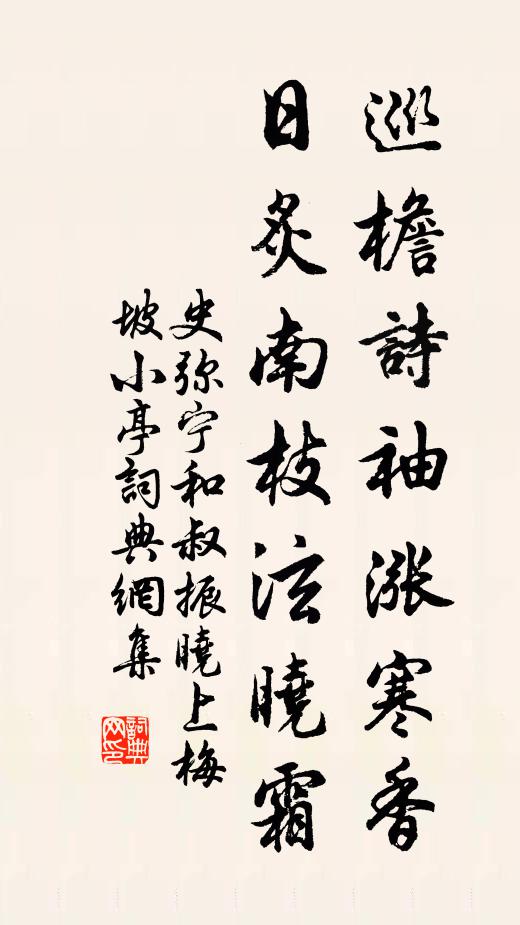 巡檐詩袖漲寒香
日炙南枝泫曉霜
史弥宁和叔振曉上梅
坡小亭詞典網集
詞典網印